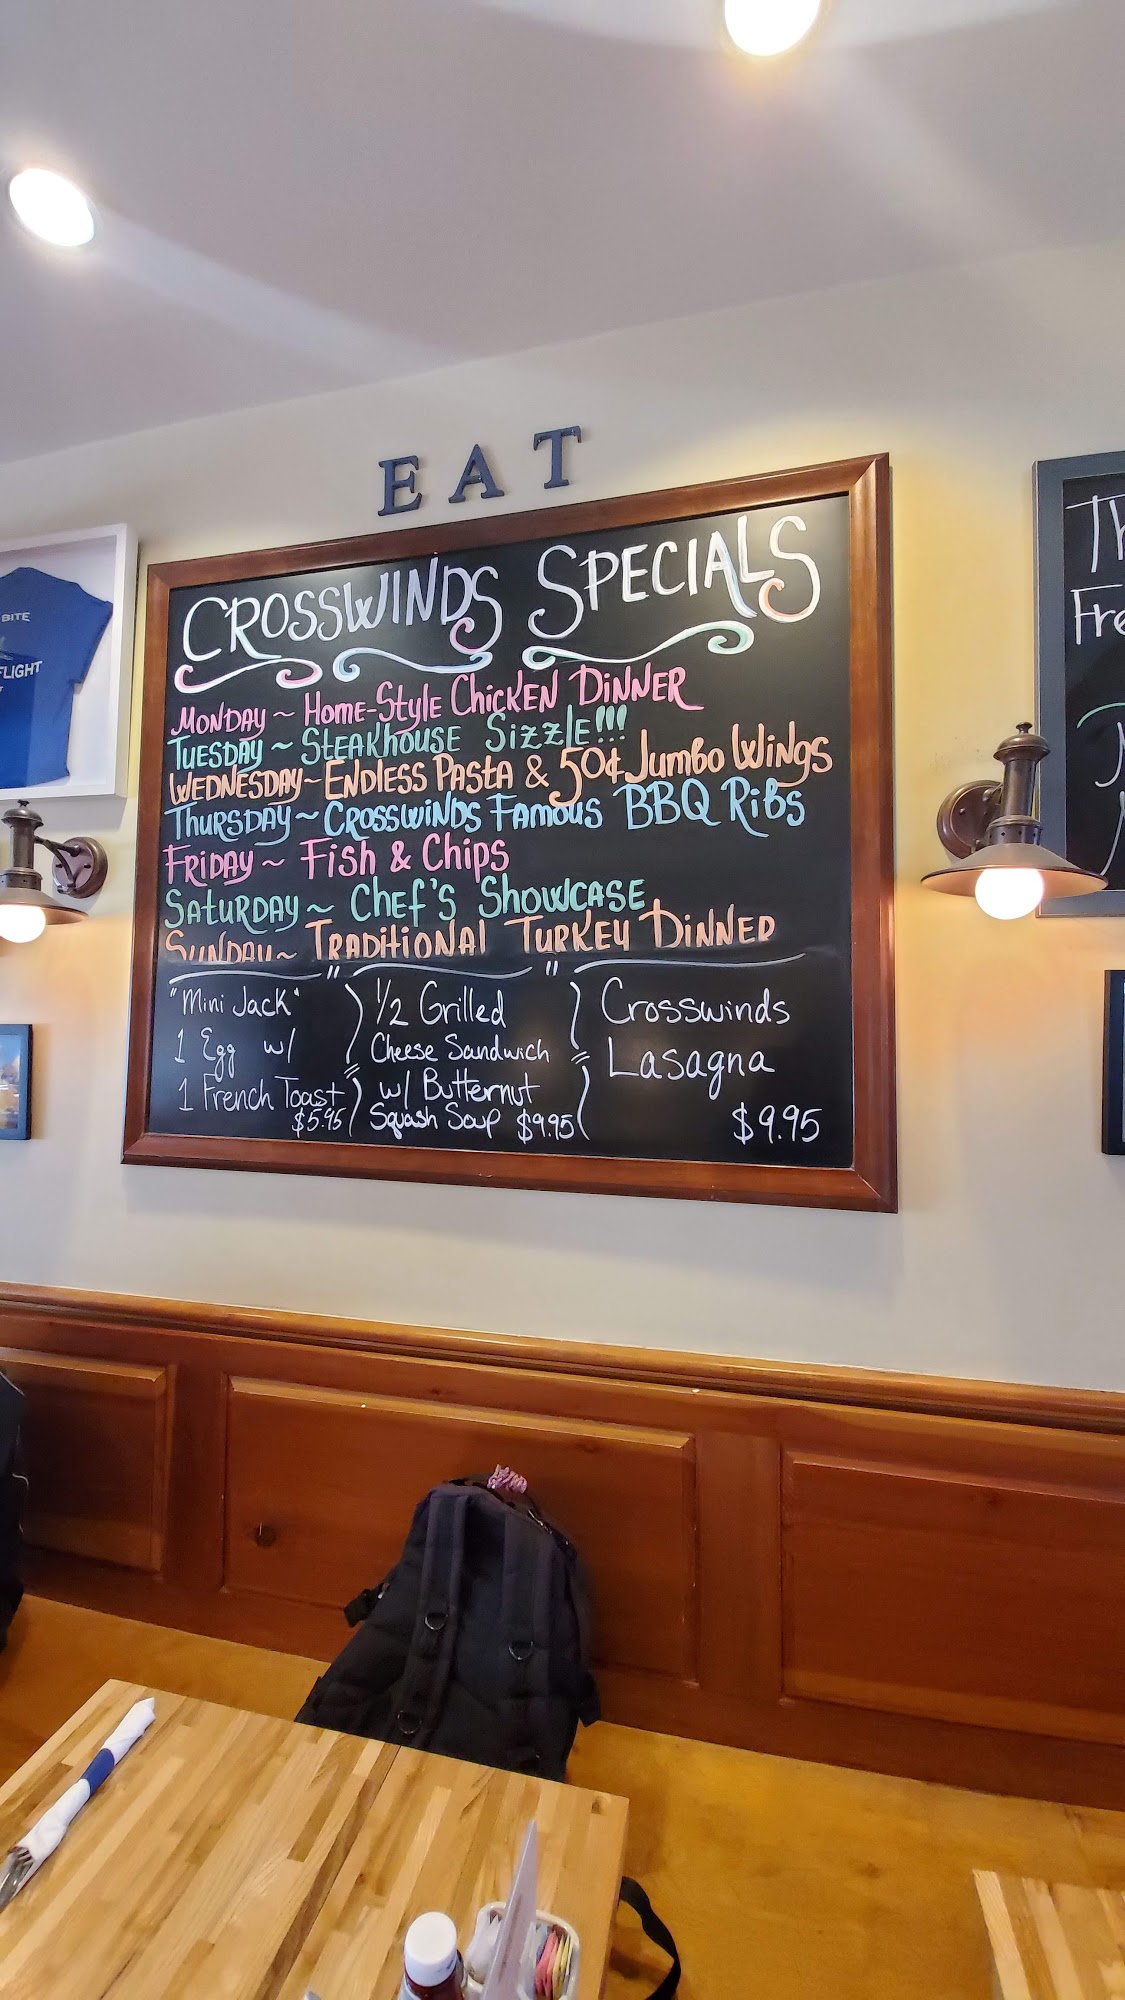 EAT
CROSSWINDS SPECIALS
MONDAY ~ HOME-STYLE CHICKEN DINNER
TUESDAY ~ STEAKHOUSE SIZZLE!!!
WEDNESDAY ~ ENDLESS PASTA & 50¢ JUMBO WINGS
THURSDAY ~ CROSSWINDS FAMOUS BBQ RIBS
FRIDAY ~ FISH & CHIPS
SATURDAY ~ CHEF'S SHOWCASE
SUNDAY ~ TRADITIONAL TURKEY DINNER
"Mini Jack"
1 Egg w/
1 French Toast
$5.95
1/2 Grilled
Cheese Sandwich
w/ Butternut
Squash Soup $9.95
Crosswinds
Lasagna
$9.95
BITE
FLIGHT